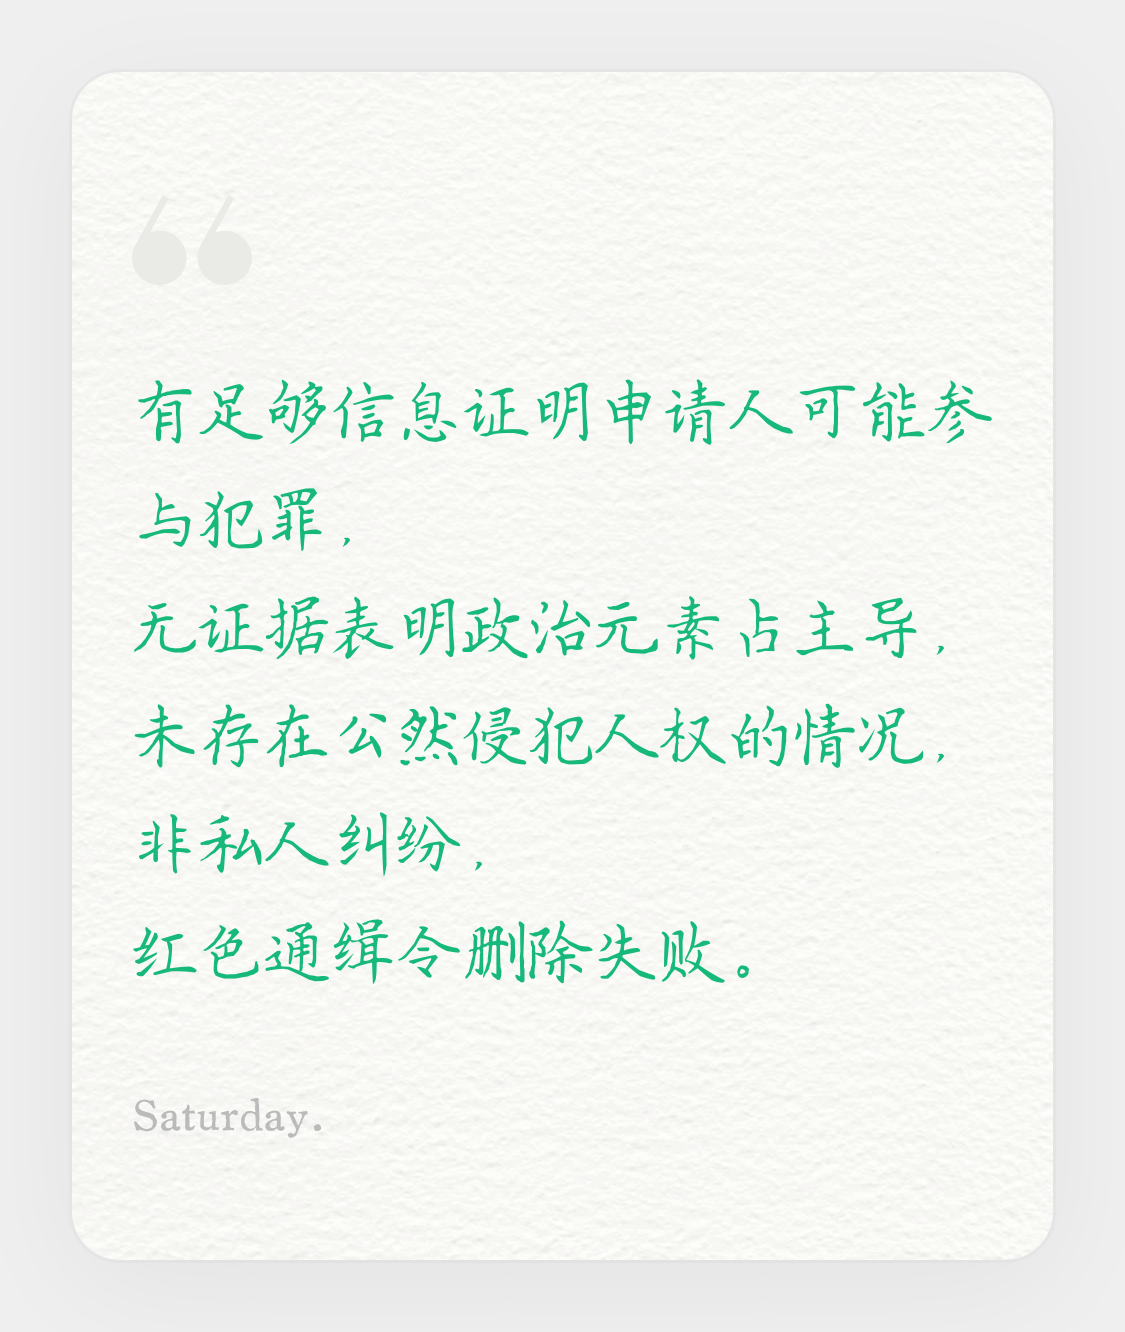 有足够信息证明申请人可能参
与犯罪，
无证据表明政治元素占主导，
未存在公然侵犯人权的情况，
非私人纠纷，
红色通缉令删除失败。
Saturday.